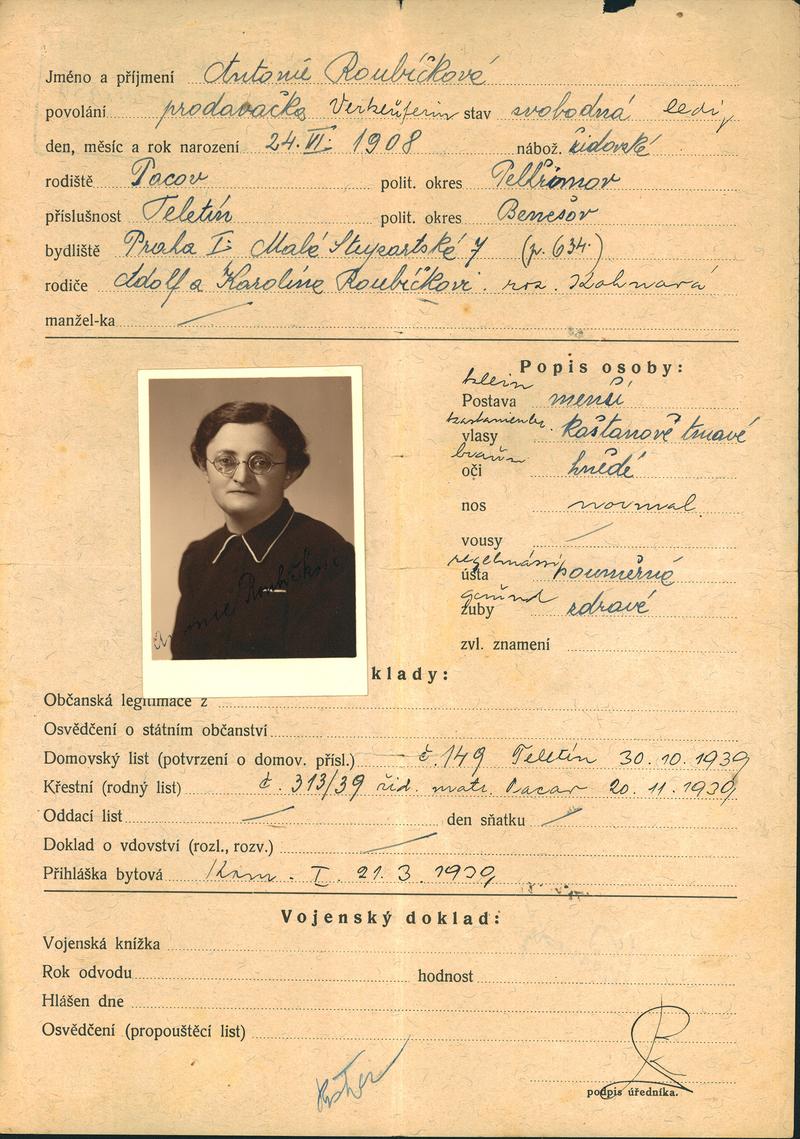 Jméno a příjmení Antonie Roubíčková
povolání prodavačka Verkäuferin stav svobodná ledig
den, měsíc a rok narození 24. VI. 1908 nábož. židovské
rodiště Pacov polit. okres Pelhřimov
příslušnost Teletín polit. okres Benešov
bydliště Praha I. Malá Stupartská 7 (p. 634.)
rodiče Adolf a Karolína Roubíčkovi roz. Kohnová
manžel-ka
Popis osoby:
klein
Postava menší
vlasy kaštanově tmavé
braun
oči hnědé
nos normal
vousy
regelmässi
ústa souměrné
gesund
zuby zdravé
zvl. znamení
Antonie Roubíčková
klady:
Občanská legitimace z
Osvědčení o státním občanství
Domovský list (potvrzení o domov. přísl.) č. 149 Teletín 30. 10. 1939
Křestní (rodný list) č. 313/39 žid. matr. Pacov 20. 11. 1939
Oddací list den sňatku
Doklad o vdovství (rozl., rozv.)
Přihláška bytová Kom. I. 21. 3. 1939
Vojenský doklad:
Vojenská knížka
Rok odvodu hodnost
Hlášen dne
Osvědčení (propouštěcí list)
podpis úředníka.